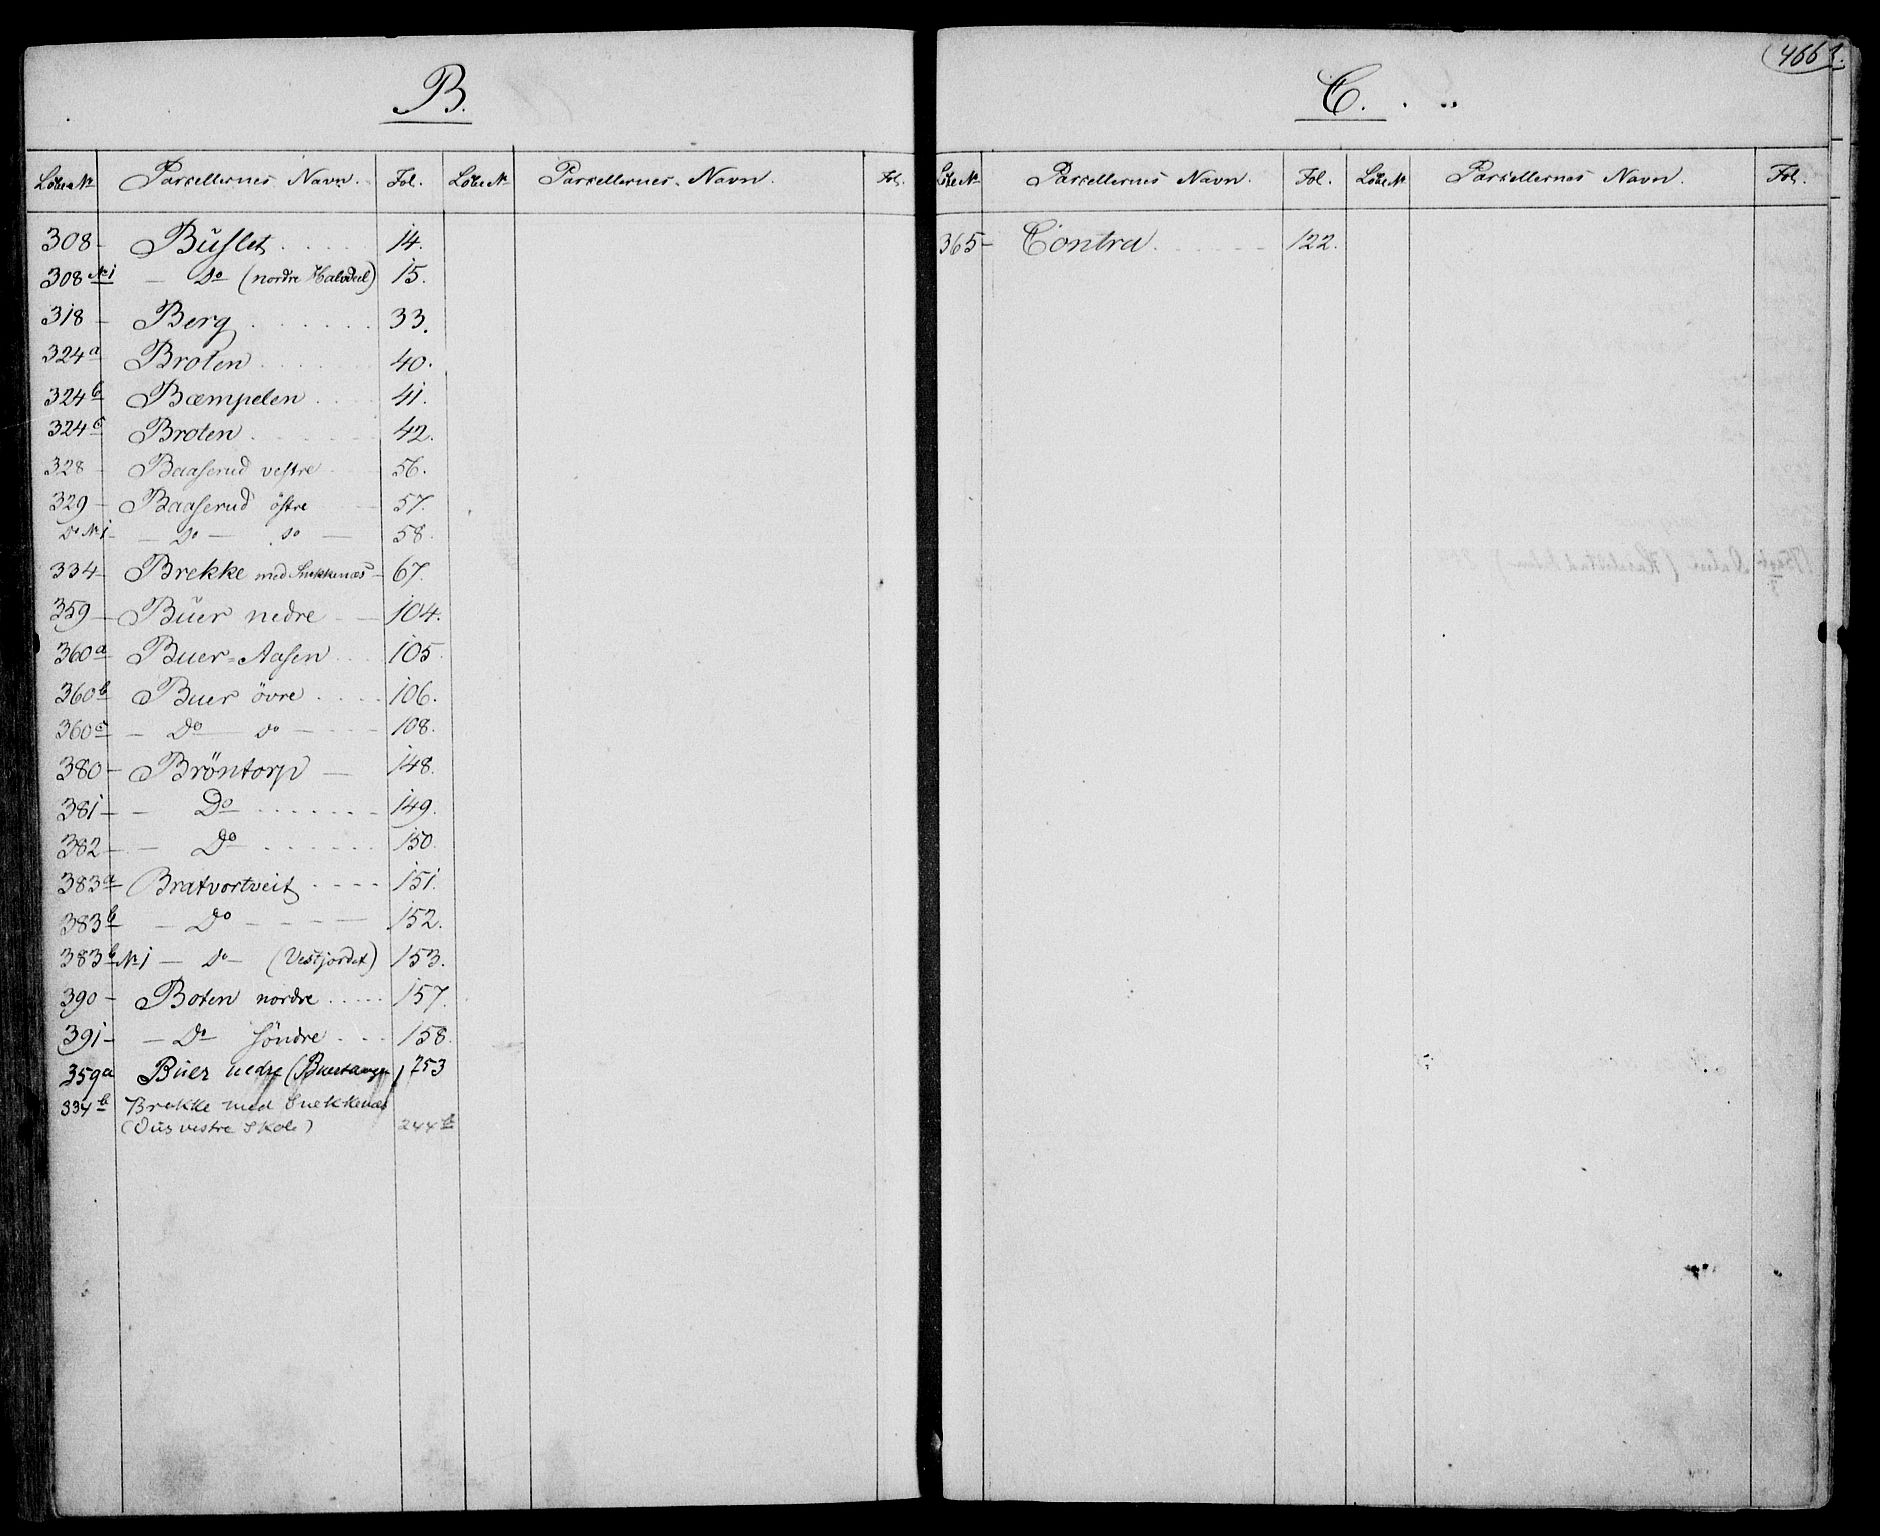 B.
Löbe № Parcellernes Navn. Fol. Löbe № Parcellernes Navn. Fol.
308 - Buslet . . . . . 14.
308 № 1 - Do (nordre Halvdeel) 15.
318 - Berg . . . . . . 33.
324a Broten . . . . . . 40.
324b Bæmpelen . . . . 41.
324c Broten . . . . . . 42.
328 - Baaserud vestre - 56.
329 - Baaserud östre - 57.
Do № 1 - - Do - do - 58.
334 - Brekke med Snekkenæs - 67.
359 - Buer nedre - - 104.
360a Buer-Aasen . . . . 105.
360b Buer övre . . . . 106.
360c - Do - do - - - - 108.
380 - Bröntorp - 148.
381 - - Do . . . . . . . 149.
382 - - Do . . . . . . 150.
383a - Bratvortveit . - - - 151.
383b - Do - - - - 152.
383b № 1 - do - (Vestjordet) 153.
390 - Boten nordre . . . . . 157.
391 - - Do söndre . . . 158.
359a Buer nedre (Buertangen) 253
334b Brekke med Snekkenæs
(Øus vestre Skole) 244b
C. . ..
466
Löbe № Parcellernes Navn. Fol. Löbe № Parcellernes Navn. Fol.
365 - Contra . . . . . . 122.